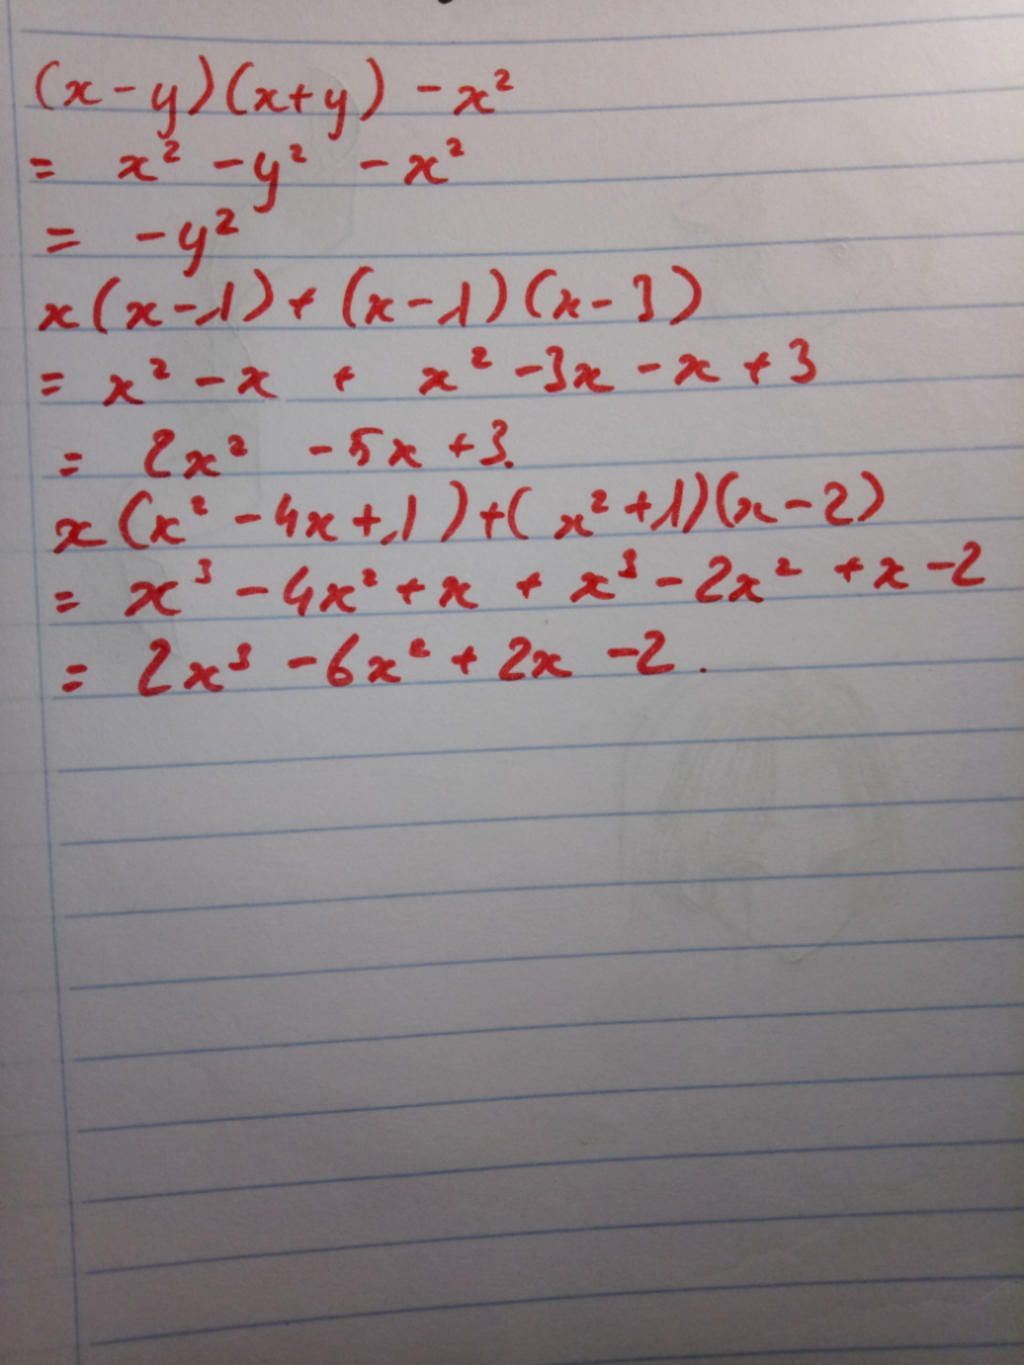 (x-y)(x+y) -x²
= x² -y² -x²
= -y²
x(x-1)+(x-1)(x-3)
= x² -x + x² -3x -x +3
= 2x² -5x +3.
x(x² -4x+1)+(x²+1)(x-2)
= x³ -4x² +x + x³ -2x² +x -2
= 2x³ -6x² + 2x -2.